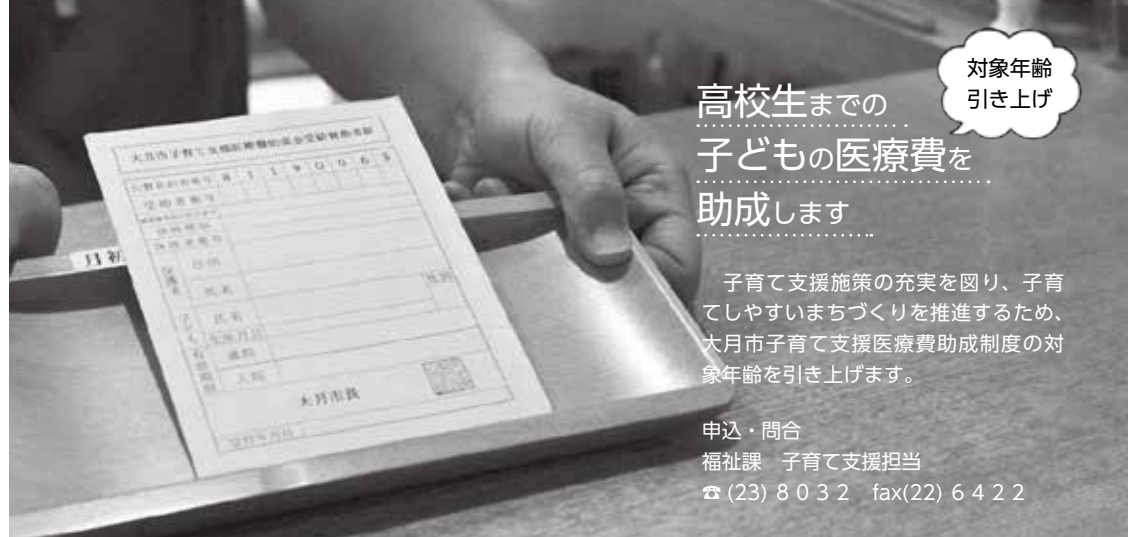 対象年齢
引き上げ
高校生までの
子どもの医療費を
助成します
子育て支援施策の充実を図り、子育
てしやすいまちづくりを推進するため、
大月市子育て支援医療費助成制度の対
象年齢を引き上げます。
申込・問合
福祉課　子育て支援担当
☎(23)８０３２　fax(22)６４２２
大月市子育て支援医療費助成金受給資格者証
受給者番号
住所
氏名
性別
氏名
生年月日
大月市長